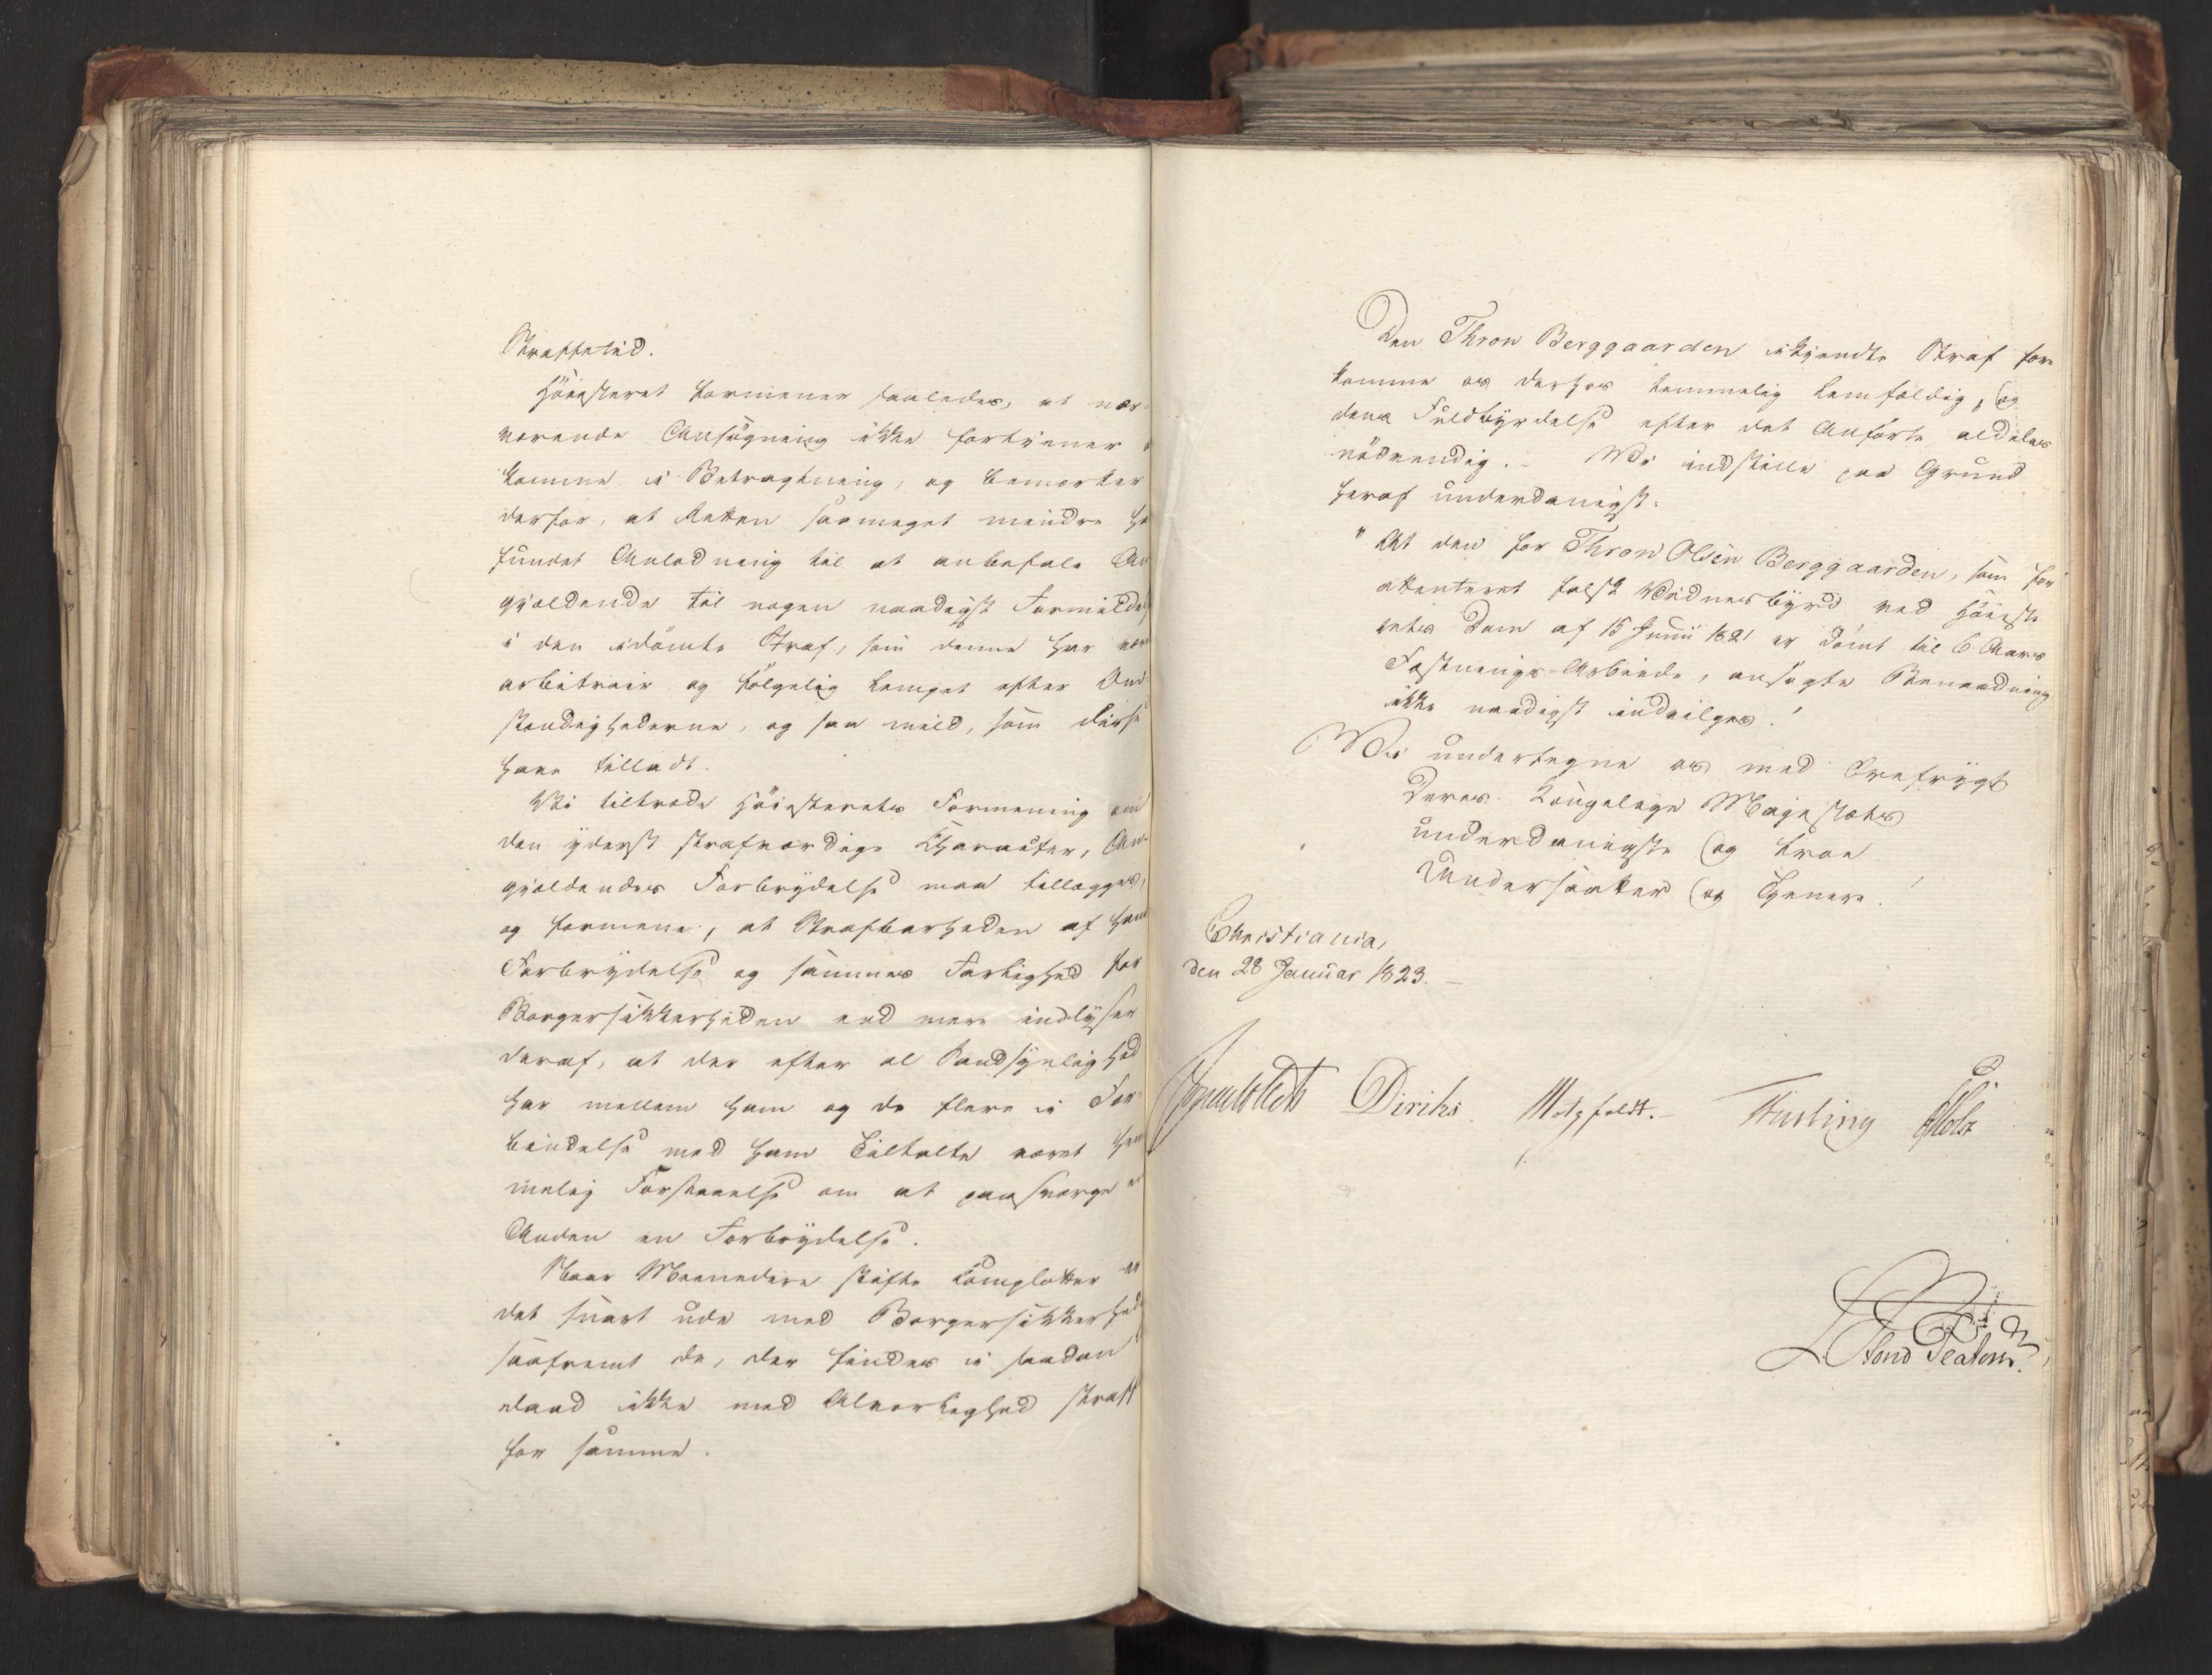 Straffetid.
Höiesteret formener saaledes, at nær-
værende Ansögning ikke fortjener
komme i Betragtning, og bemærker
derfor, at Retten saameget mindre ha
fundet Anledning til at anbefale An
gjældende til nogen naadigst Formildel
i den idömte Straf, som denne har vær
arbitrair og fölgelig lempet efter Om-
stændighederne, og saa mild, som disse
have tilladt.
Vi tiltræde Höiesterets Formening om
den yderst strafværdige Character, An-
gjældendes Forbrydelse maa tillægges,
og formene, at Strafbarheden af hans
Forbrydelse og sammes Farlighed for
Borgersikkerheden end mere indlyser
deraf, at der efter al Sandsynlighed
har mellem ham og de flere i For-
bindelse med ham Tiltalte været hem
melig Forstaaelse om at paasværge en
Anden en Forbrydelse.
Naar Meenedere stifte Complotter er
det snart ude med Borgersikkerhed
saafremt de, der findes i saadan
daad ikke med Alvorlighed straff
for samme.
Den Thron Berggaarden ikjendte Straf fore
komme os derhos temmelig lemfældig, og
dens Fuldbyrdelse efter det Anförte aldeles
nödvendig. - Vi indstille paa Grund
heraf underdanigst:
"At den for Thron Olsen Berggaarden, som for
attenteret falsk Vidnesbyrd ved Höieste
rets Dom af 15 Junii 1821 er dömt til 6 Aars
Fæstnings-Arbeide, ansøgte Benaadning
ikke naadigst indvilges.
Vi undertegne os med Ærefrygt
Deres Kongelige Majestæts
underdanigste og troe
Undersaatter og Tjenere.
Christiania,
den 28 Januar 1823.
Diriks Motzfeldt. Holst